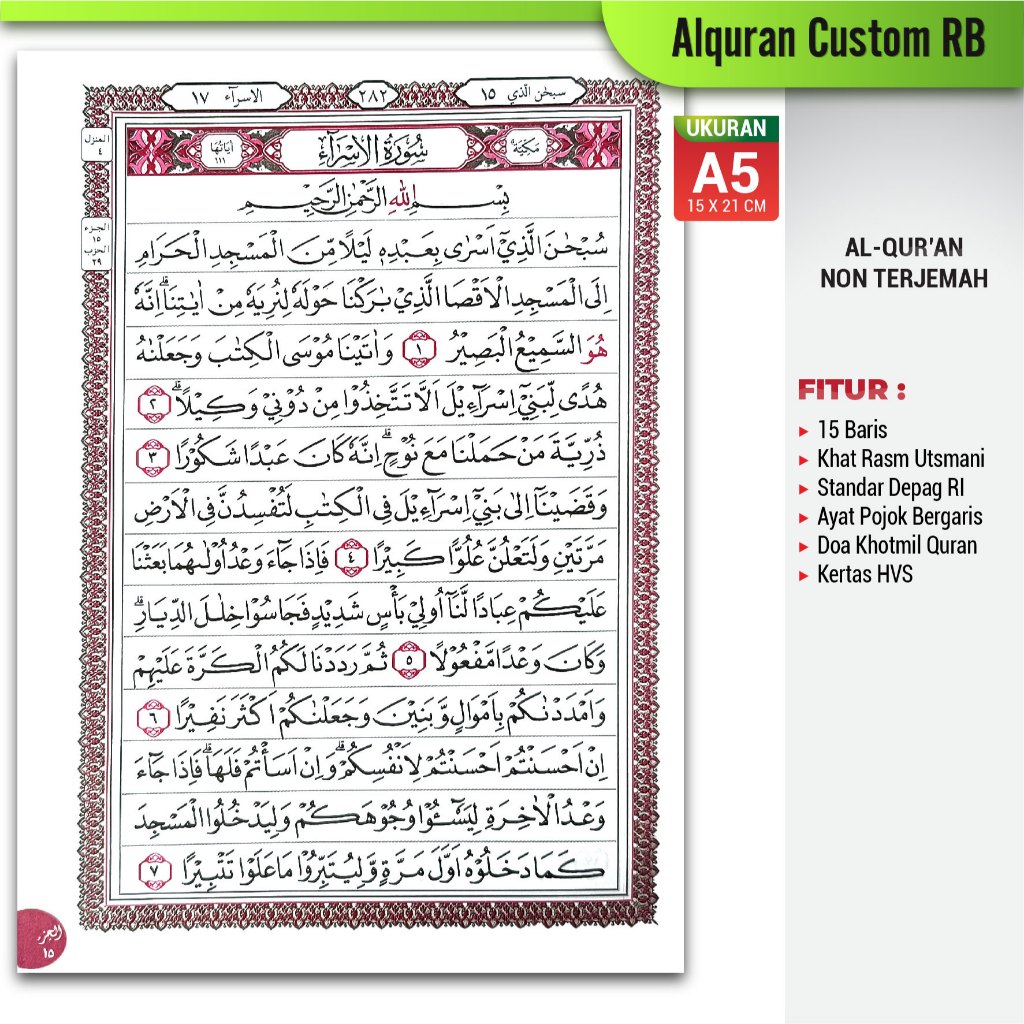 Alquran Custom RB
سبحٰن الّذي ١٥
٢٨٢
الاسرآء ١٧
المنزل
٤
الجزء
١٥
الحزب
٢٩
مَكِّيَّةٌ
سُوْرَةُ الْاِسْرَآءِ
اٰيَاتُهَا
١١١
بِسْمِ اللّٰهِ الرَّحْمٰنِ الرَّحِيْمِ
سُبْحٰنَ الَّذِيْٓ اَسْرٰى بِعَبْدِهٖ لَيْلًا مِّنَ الْمَسْجِدِ الْحَرَامِ
اِلَى الْمَسْجِدِ الْاَقْصَا الَّذِيْ بٰرَكْنَا حَوْلَهٗ لِنُرِيَهٗ مِنْ اٰيٰتِنَاۗ اِنَّهٗ
هُوَ السَّمِيْعُ الْبَصِيْرُ ١ وَاٰتَيْنَا مُوْسَى الْكِتٰبَ وَجَعَلْنٰهُ
هُدًى لِّبَنِيْٓ اِسْرَاۤءِيْلَ اَلَّا تَتَّخِذُوْا مِنْ دُوْنِيْ وَكِيْلًاۗ ٢
ذُرِّيَّةَ مَنْ حَمَلْنَا مَعَ نُوْحٍۗ اِنَّهٗ كَانَ عَبْدًا شَكُوْرًا ٣
وَقَضَيْنَآ اِلٰى بَنِيْٓ اِسْرَاۤءِيْلَ فِى الْكِتٰبِ لَتُفْسِدُنَّ فِى الْاَرْضِ
مَرَّتَيْنِ وَلَتَعْلُنَّ عُلُوًّا كَبِيْرًا ٤ فَاِذَا جَاۤءَ وَعْدُ اُوْلٰىهُمَا بَعَثْنَا
عَلَيْكُمْ عِبَادًا لَّنَآ اُولِيْ بَأْسٍ شَدِيْدٍ فَجَاسُوْا خِلٰلَ الدِّيَارِۗ
وَكَانَ وَعْدًا مَّفْعُوْلًا ٥ ثُمَّ رَدَدْنَا لَكُمُ الْكَرَّةَ عَلَيْهِمْ
وَاَمْدَدْنٰكُمْ بِاَمْوَالٍ وَّبَنِيْنَ وَجَعَلْنٰكُمْ اَكْثَرَ نَفِيْرًا ٦
اِنْ اَحْسَنْتُمْ اَحْسَنْتُمْ لِاَنْفُسِكُمْۗ وَاِنْ اَسَأْتُمْ فَلَهَاۗ فَاِذَا جَاۤءَ
وَعْدُ الْاٰخِرَةِ لِيَسٗۤـُٔوْا وُجُوْهَكُمْ وَلِيَدْخُلُوا الْمَسْجِدَ
كَمَا دَخَلُوْهُ اَوَّلَ مَرَّةٍ وَّلِيُتَبِّرُوْا مَا عَلَوْا تَتْبِيْرًا ٧
الجزء
١٥
UKURAN
A5
15 X 21 CM
AL-QUR'AN
NON TERJEMAH
FITUR :
15 Baris
Khat Rasm Utsmani
Standar Depag RI
Ayat Pojok Bergaris
Doa Khotmil Quran
Kertas HVS